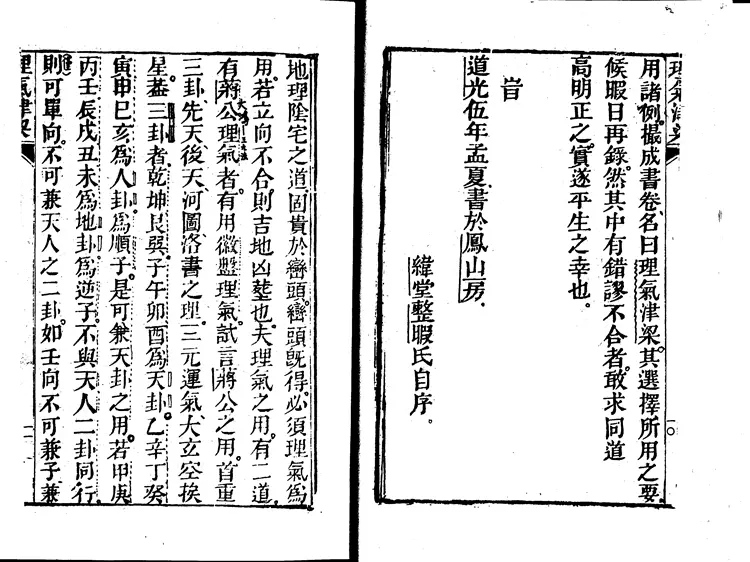 用諸例。撮成書卷、名曰理氣津梁。其選擇所用之要
候暇日再錄。然其中有錯謬不合者。敢求同道
高明正之。實遂平生之幸也。
旹
道光伍年孟夏書於鳳山房。
緯堂整暇氏自序。
理氣津梁
一〇
地理陰宅之道。固貴於巒頭。巒頭旣得。必須理氣爲
用。若立向不合。則吉地凶塟也。夫理氣之用。有二道
有蔣公理氣者。有用徽盤理氣。試言蔣公之用。首重
三卦。先天、後天、河圖、洛書之理。三元運氣、大玄空挨
星。葢三卦者。乾坤艮巽。子午卯酉爲天卦。乙辛丁癸
寅申巳亥爲人卦。爲順子。是可兼天卦之用。若甲庚
丙壬辰戌丑未爲地卦。爲逆子。不與天人二卦同行
則可單向。不可兼天人之二卦。如壬向不可兼子兼
理氣津梁